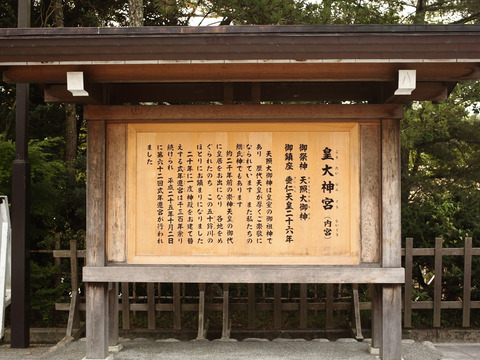 皇大神宮(内宮)
御祭神 天照大御神
御鎮座 垂仁天皇二十六年
天照大御神は皇室の御祖神で
あり 歴代天皇が厚くご崇敬に
なられています また私たちの
総氏神でもあります
約二千年前の崇神天皇の御代
に皇居をお出になり 各地をめ
ぐられたのち この五十鈴川の
ほとりにお鎮まりになりました
二十年に一度神殿をお建て替
えする式年遷宮は千三百年余り
続けられ 平成二十五年十月二日
に第六十二回式年遷宮が行われ
ました